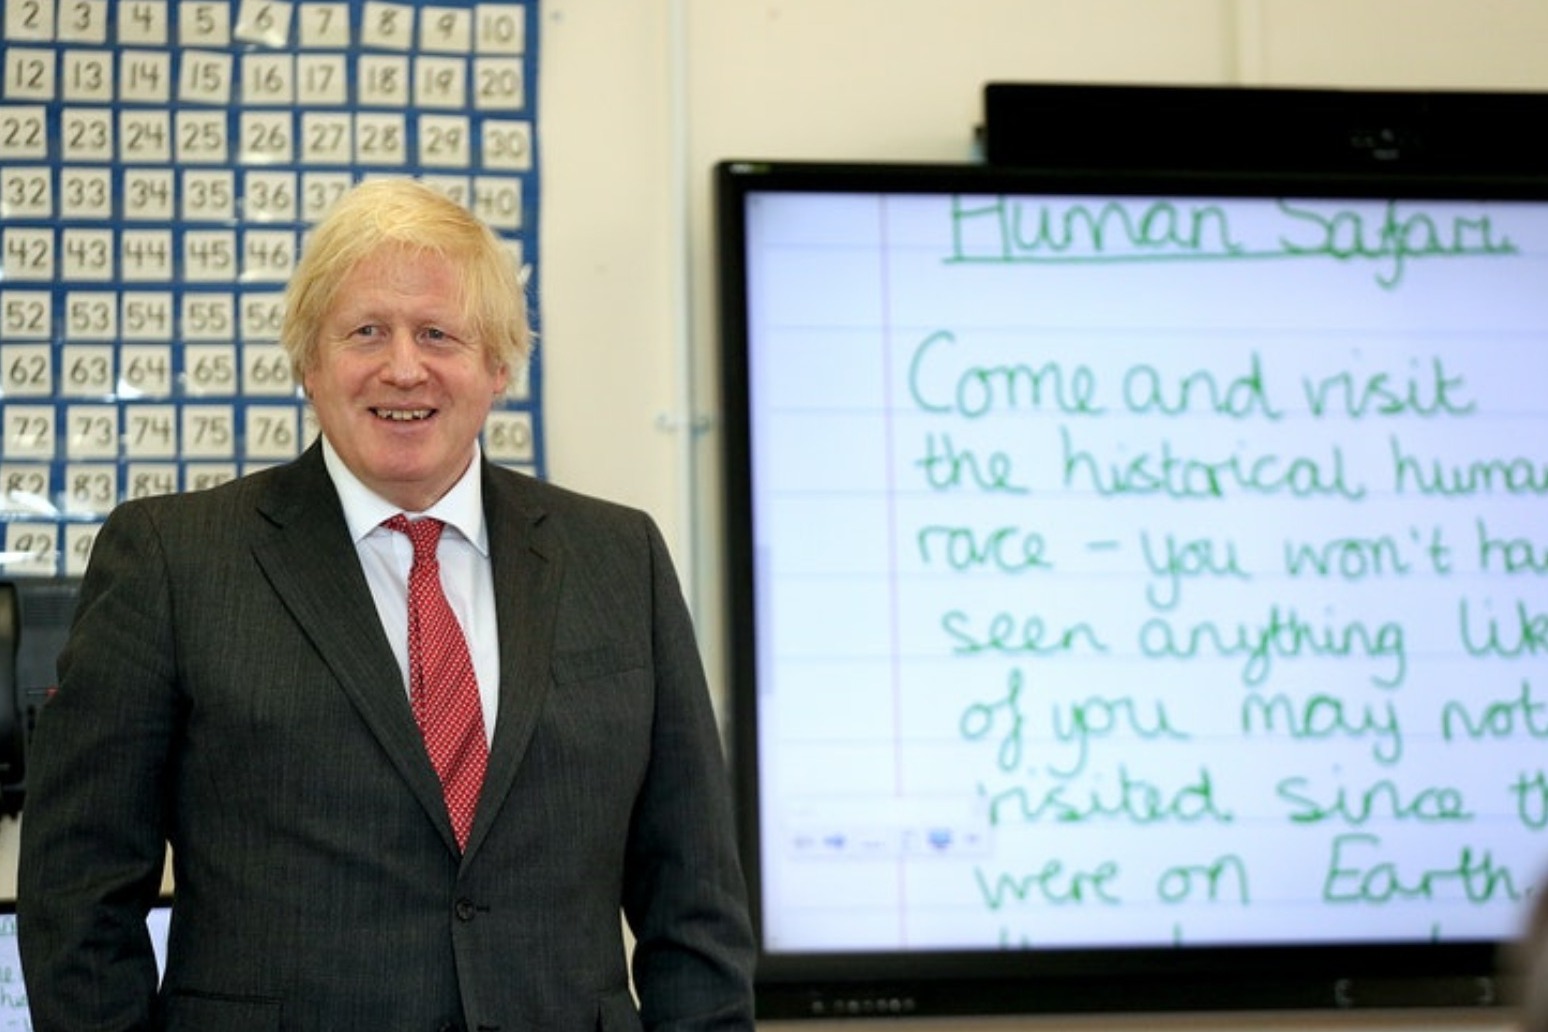 2 3 4 5 6 7 8 9 10
12 13 14 15 16 17 18 19 20
22 23 24 25 26 27 28 29 30
32 33 34 35 36 37 40
42 43 44 45 46
52 53 54 55 56
62 63 64 65 66
72 73 74 75 76 80
82 83 84
92
Human Safari.
Come and visit
the historical human
race - you won't ha
seen anything lik
of you may not
visited since th
were on Earth.